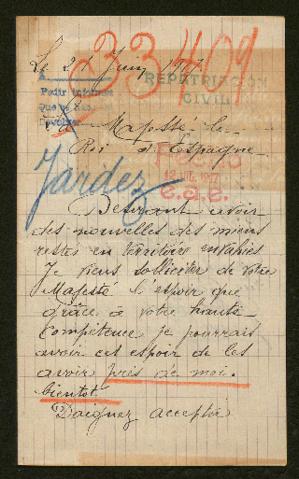 33409
Le 21 Juin 1917
REPATRIACION
CIVIL
Pedir informes
Que
Devolver
Sa Majesté le
Roi d'Espagne
12 JUL. 1917
Jardez
Desirant avoir
des nouvelles des miens
restés en territoire envahies
Je viens solliciter de votre
Majesté l'espoir que
grâce à votre haute
Compétence je pourrais
avoir cet espoir de les
avoir près de moi.
bientot.
Daignez accepter